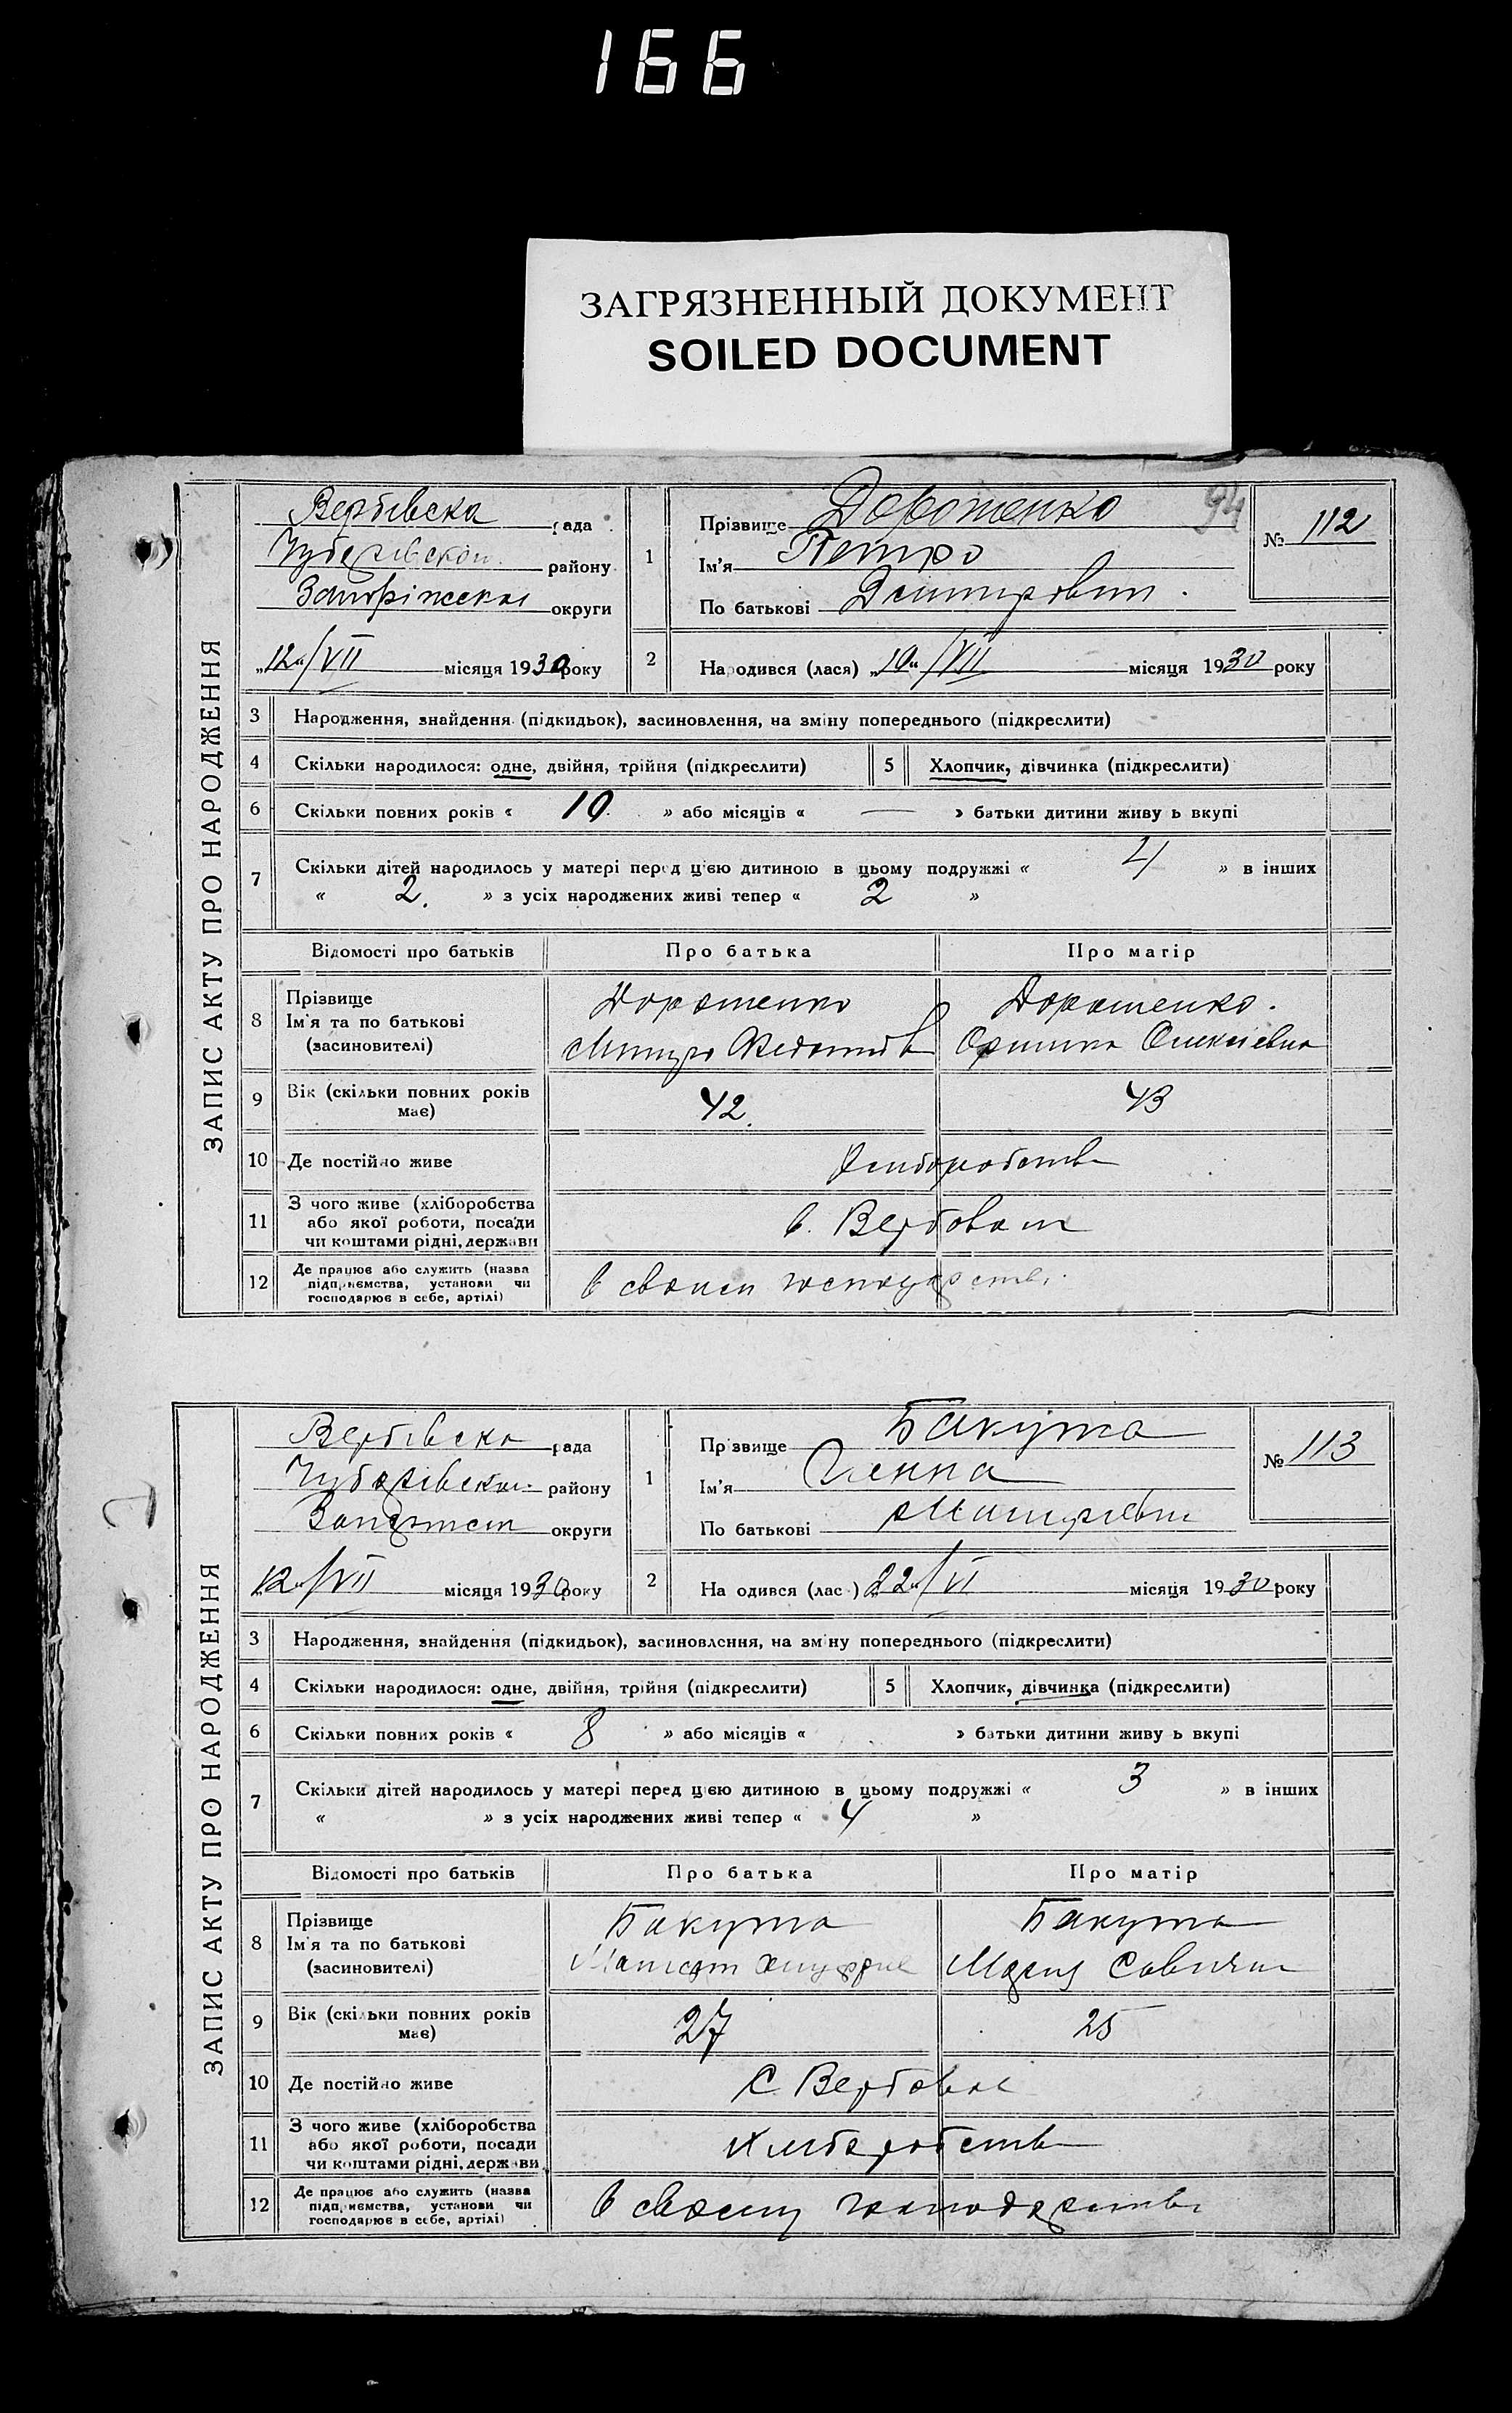 166
ЗАГРЯЗНЕННЫЙ ДОКУМЕНТ
SOILED DOCUMENT
94
ЗАПИС АКТУ ПРО НАРОДЖЕННЯ
Вербівска рада
району
округи
„12“/VII місяця 1930 року
1
Прізвище Дорошенко
Ім'я Петро
По батькові
№ 112
2
Народився (лася) „10“/VII місяця 1930 року
3 Народження, знайдення (підкидьок), засиновлення, на зміну попереднього (підкреслити)
4 Скільки народилося: одне, двійня, трійня (підкреслити)
5 Хлопчик, дівчинка (підкреслити)
6 Скільки повних років « 10 » або місяців « — » батьки дитини живу ь вкупі
7 Скільки дітей народилось у матері перед цією дитиною в цьому подружжі « 4 » в інших
« 2. » з усіх народжених живі тепер « 2 »
Відомості про батьків Про батька Про матір
8 Прізвище
Ім'я та по батькові
(засиновителі)
Дорошенко
Дорошенко.
Олексіевна
9 Вік (скільки повних років
має)
42.
43
10 Де постійно живе
11 З чого живе (хліборобства
або якої роботи, посади
чи коштами рідні, держави
12 Де працює або служить (назва
підприємства, установи чи
господарює в себе, артілі)
ЗАПИС АКТУ ПРО НАРОДЖЕННЯ
Вербівска рада
району
округи
12“/VII місяця 1930 року
1
Прізвище Бакума
Ім'я
По батькові
№ 113
2
На одився (лас ) 22“/VI місяця 1930 року
3 Народження, знайдення (підкидьок), засиновлення, на зміну попереднього (підкреслити)
4 Скільки народилося: одне, двійня, трійня (підкреслити)
5 Хлопчик, дівчинка (підкреслити)
6 Скільки повних років « 8 » або місяців « » батьки дитини живу ь вкупі
7 Скільки дітей народилось у матері перед цією дитиною в цьому подружжі « 3 » в інших
« » з усіх народжених живі тепер « 4 »
Відомості про батьків Про батька Про матір
8 Прізвище
Ім'я та по батькові
(засиновителі)
Бакума
Бакума
Мария
9 Вік (скільки повних років
має)
27
25
10 Де постійно живе
С. Вербове
11 З чого живе (хліборобства
або якої роботи, посади
чи коштами рідні, держави
Хлеборобства
12 Де працює або служить (назва
підприємства, установи чи
господарює в себе, артілі)
в своему господарстві